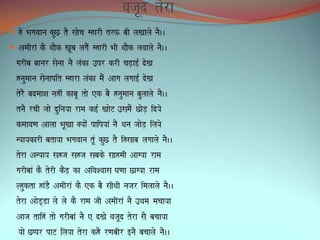 वजूद तेरा
हे भगवान कुछ तै सोच म्हारी तरफ बी लखाले नै।।
अमीरां कै धौक खूब लगै म्हारी भी धौक लवाले नै।।
गरीब बानर सेना नै लंका उपर करी चढ़ाई देख
हनुमान सेनापति म्हारा लंका मैं आग लगाई देख
तेरै बदमाश नहीं काबू तो एक बै हनुमान बुलाले नै।।
तनै रची जो दुनिया राम कई खोट उसमैं छोड़ दिये
कमावण आला भूखा क्यों पापियां नै धन जोड़ लिये
न्यायकारी बताया भगवान तूं कुछ तै हिसाब लगाले नै।।
तेरा अन्याय सहज सहज सबकै साहमी आग्या राम
गरीबां कै तेरी कैड़ का अविश्वास घणा छाग्या राम
ल्हुकता हांडै अमीरां कै एक बै सीधी नजर मिलाले नै।।
तेरा ओड़डा ले ले कै राम जी अमीरां नै उधम मचाया
आज ताहिं तो गरीबां नै ए देखे वजूद तेरा सै बचाया
यो छप्पर पाट लिया तेरा कहै रणबीर इनै बचाले नै।।